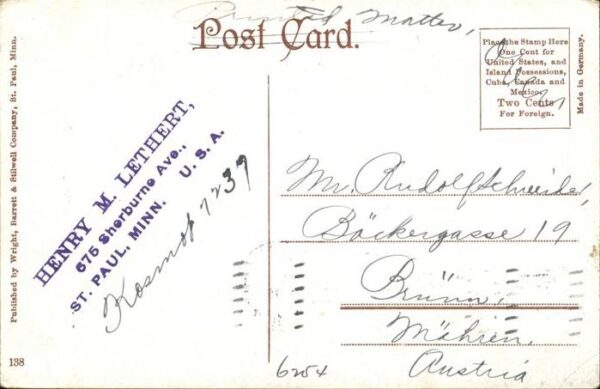 Printed Matter,
Post Card.
Place the Stamp Here
One Cent for
United States, and
Island Possessions,
Cuba, Canada and
Mexico.
Two Cents
For Foreign.
Made in Germany.
Published by Wright, Barrett & Stilwell Company, St. Paul, Minn.
HENRY M. LETHERT,
675 Sherburne Ave.,
ST. PAUL, MINN. U. S. A.
Kosmos 7239
Mr. Rudolf Schneider,
Bäckergasse 19
Brünn,
Mähren,
Austria
138
6254